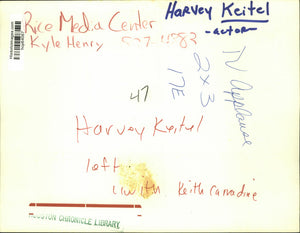 Rice Media Center
Kyle Henry 527-4882
Harvey Keitel
-actor-
TV Applause
2x3
17E
47
Harvey Keitel
left
with Keith Carradine
HOUSTON CHRONICLE LIBRARY